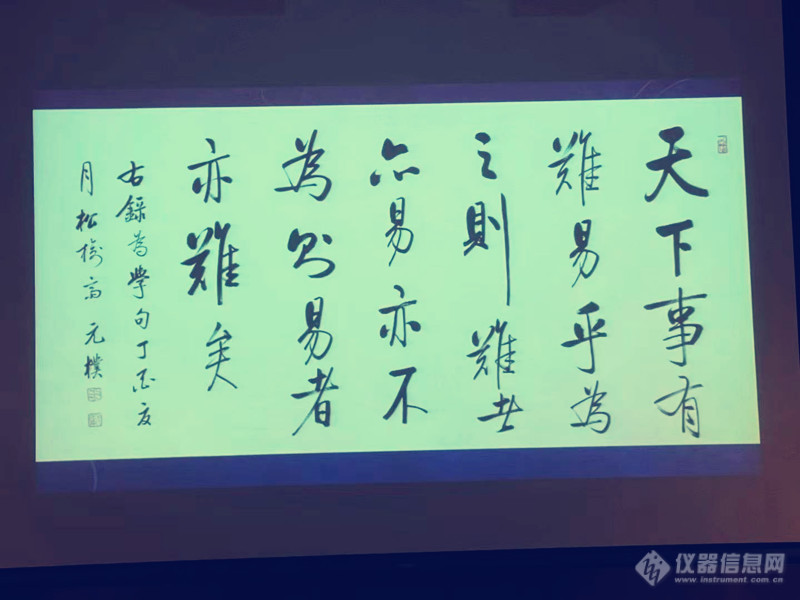 天下事有
難易乎為
之則難者
亦易亦不
為則易者
亦難矣
右錄為學句丁酉夏
月松元樸
仪器信息网
www.instrument.com.cn